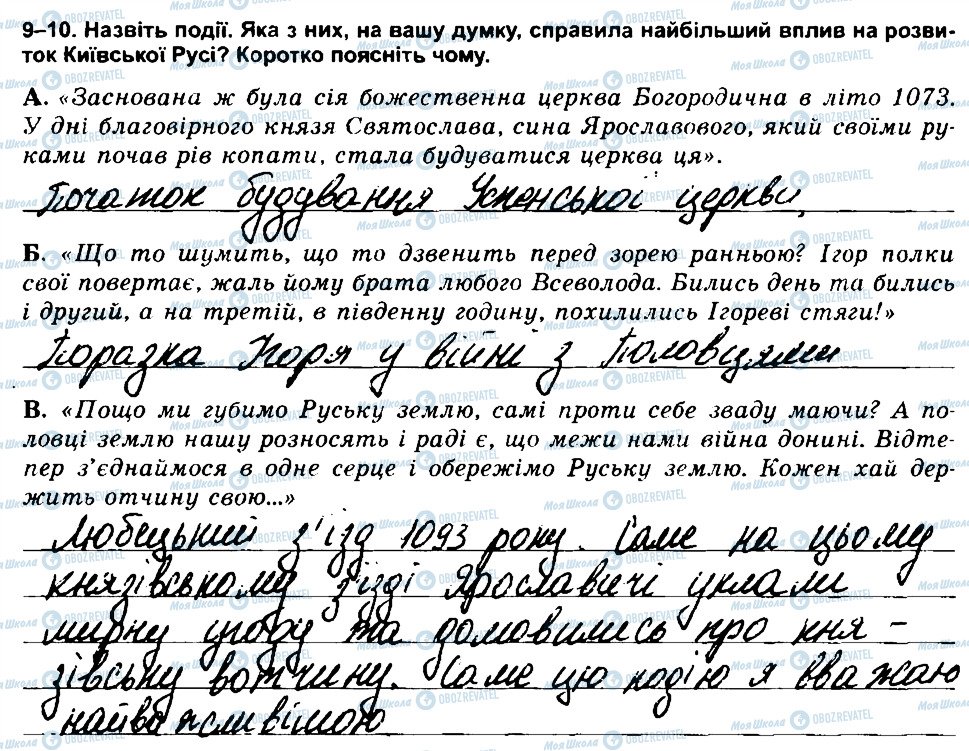 9–10. Назвіть події. Яка з них, на вашу думку, справила найбільший вплив на розви-
ток Київської Русі? Коротко поясніть чому.
А. «Заснована ж була сія божественна церква Богородична в літо 1073.
У дні благовірного князя Святослава, сина Ярославового, який своїми ру-
ками почав рів копати, стала будуватися церква ця».
Початок будування Успенської церкви,
Б. «Що то шумить, що то дзвенить перед зорею ранньою? Ігор полки
свої повертає, жаль йому брата любого Всеволода. Бились день та бились
і другий, а на третій, в південну годину, похилились Ігореві стяги!»
Поразка Ігоря у війні з Половцями
В. «Пощо ми губимо Руську землю, самі проти себе зваду маючи? А по-
ловці землю нашу розносять і раді є, що межи нами війна донині. Відте-
пер з'єднаймося в одне серце і обережімо Руську землю. Кожен хай дер-
жить отчину свою...»
Любецький з'їзд 1093 року. Саме на цьому
князівському з'їзді Ярославичі уклали
мирну угоду та домовились про кня-
зівську вотчину. Саме цю подію я вважаю
найважливішою